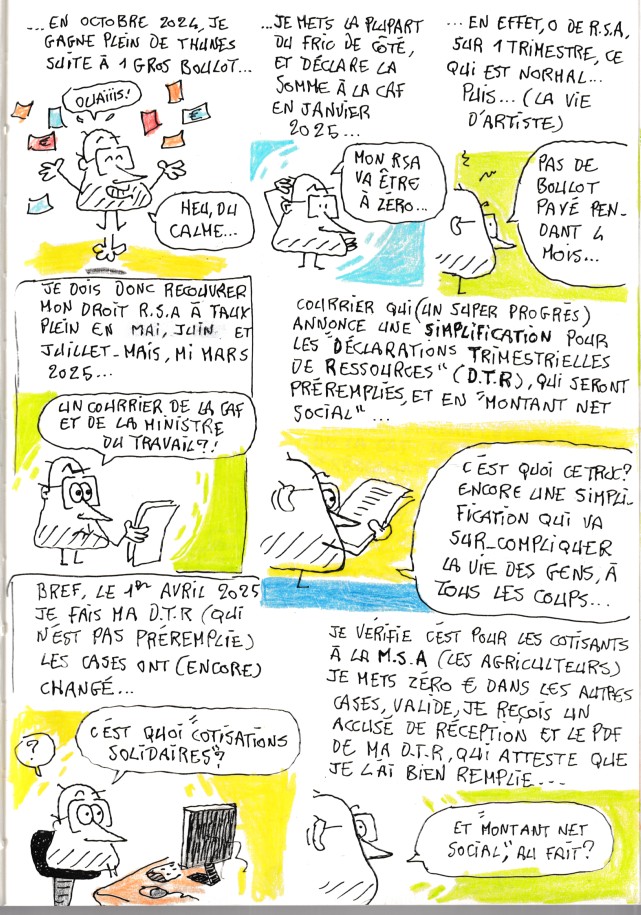 ...EN OCTOBRE 2024, JE
GAGNE PLEIN DE THUNES
SUITE À 1 GROS BOULOT...
OUAIIIS!
€
€
HEU, DU
CALME...
...JE METS LA PLUPART
DU FRIC DE CÔTÉ,
ET DÉCLARE LA
SOMME À LA CAF
EN JANVIER
2025...
MON RSA
VA ÊTRE
À ZERO...
...EN EFFET, 0 DE R.S.A,
SUR 1 TRIMESTRE, CE
QUI EST NORMAL...
PUIS... (LA VIE
D'ARTISTE)
PAS DE
BOULOT
PAYÉ PEN-
DANT 4
MOIS...
JE DOIS DONC RECOUVRER
MON DROIT R.S.A À TAUX
PLEIN EN MAI, JUIN ET
JUILLET-MAIS, MI MARS
2025...
UN COURRIER DE LA CAF
ET DE LA MINISTRE
DU TRAVAIL?!
COURRIER QUI (UN SUPER PROGRÈS)
ANNONCE UNE SIMPLIFICATION POUR
LES "DÉCLARATIONS TRIMESTRIELLES
DE RESSOURCES" (D.T.R), QUI SERONT
PRÉREMPLIES, ET EN "MONTANT NET
SOCIAL"...
C'EST QUOI CE TRUC?
ENCORE UNE SIMPLI-
FICATION QUI VA
SUR-COMPLIQUER
LA VIE DES GENS, À
TOUS LES COUPS...
BREF, LE 1er AVRIL 2025
JE FAIS MA D.T.R (QUI
N'EST PAS PRÉREMPLIE)
LES CASES ONT (ENCORE)
CHANGÉ...
?
C'EST QUOI "COTISATIONS
SOLIDAIRES"?
JE VÉRIFIE C'EST POUR LES COTISANTS
À LA M.S.A (LES AGRICULTEURS)
JE METS ZÉRO € DANS LES AUTRES
CASES, VALIDE, JE REÇOIS UN
ACCUSÉ DE RÉCEPTION ET LE PDF
DE MA D.T.R, QUI ATTESTE QUE
JE L'AI BIEN REMPLIE...
ET "MONTANT NET
SOCIAL", AU FAIT?